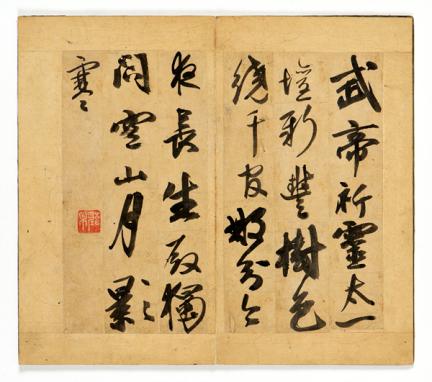 武帝祈靈太一
壇新豐樹色
繞千官 今
夜長生殿獨
閉空山月影
寒